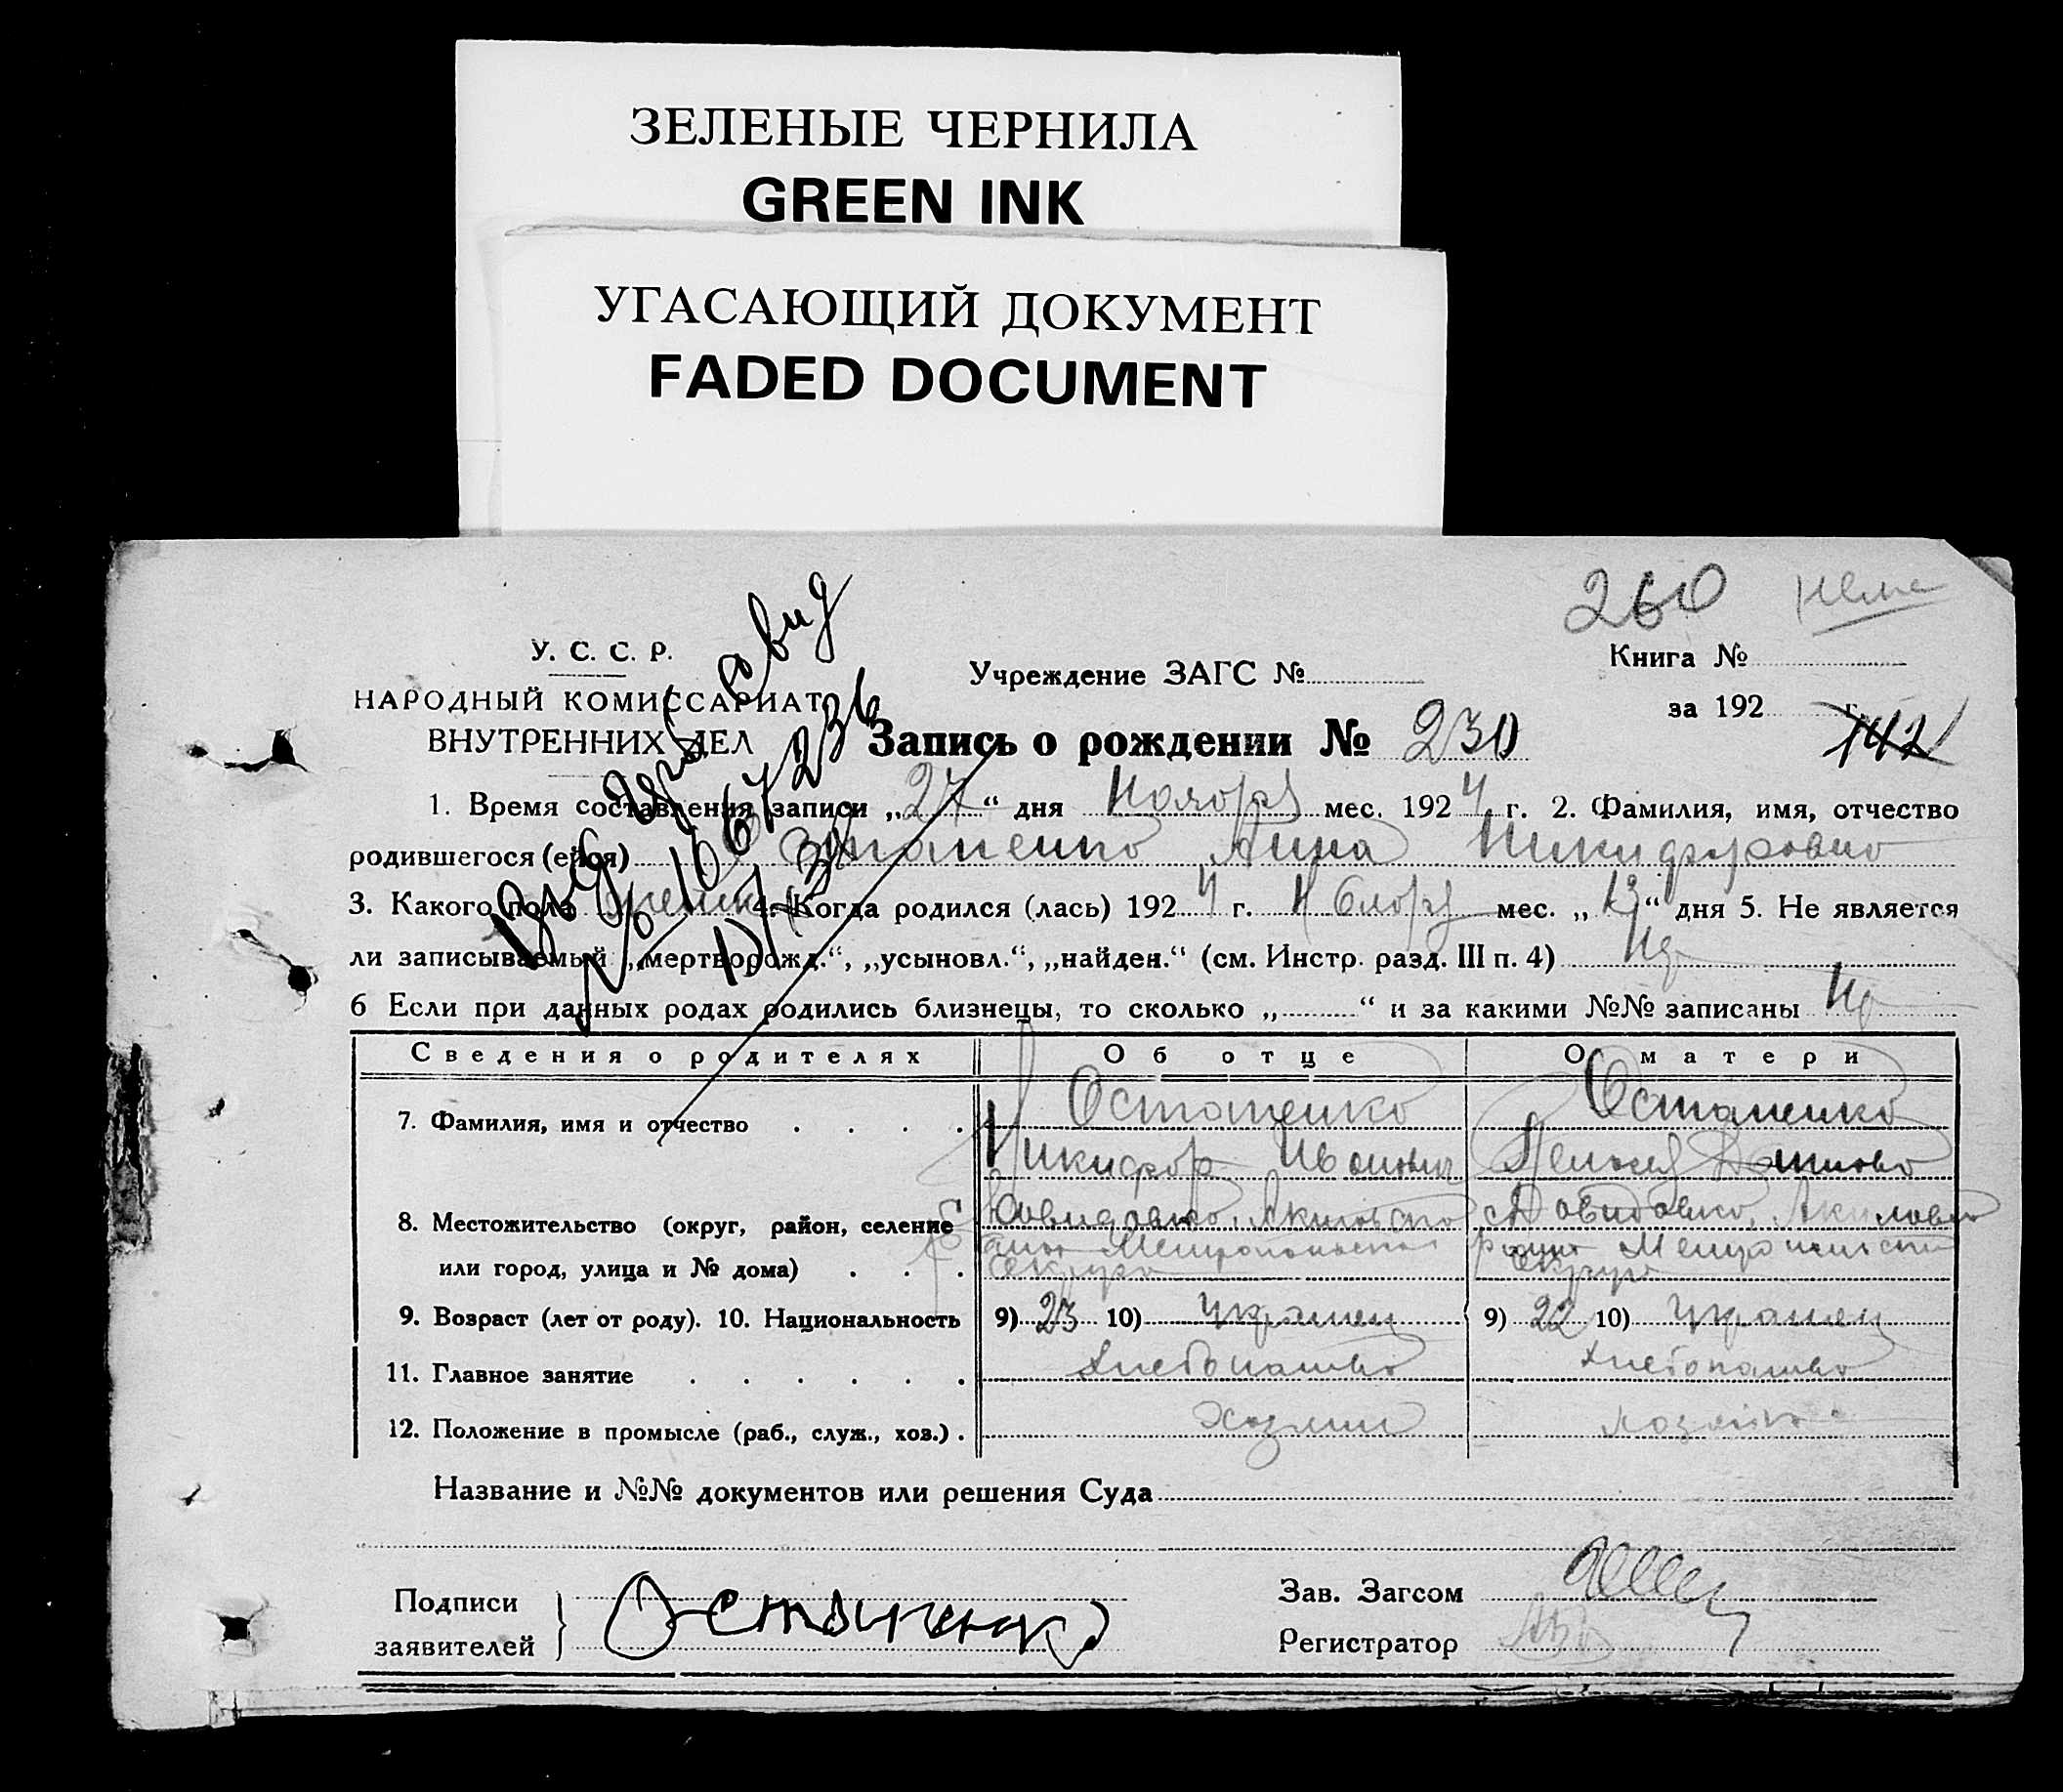 ЗЕЛЕНЫЕ ЧЕРНИЛА
GREEN INK
УГАСАЮЩИЙ ДОКУМЕНТ
FADED DOCUMENT
260
У. С. С. Р.
НАРОДНЫЙ КОМИССАРИАТ
ВНУТРЕННИХ ДЕЛ
Учреждение ЗАГС №
Книга №
за 192 г.
Запись о рождении № 230
1. Время составления записи „27“ дня Ноября мес. 1924 г. 2. Фамилия, имя, отчество
родившегося (ейся) Остапенко Анна Никифоровно
3. Какого пола 4. Когда родился (лась) 1924 г. Ноября мес. „13“ дня 5. Не является
ли записываемый „мертворожд.“, „усыновл.“, „найден.“ (см. Инстр. разд. III п. 4) Не
6 Если при данных родах родились близнецы, то сколько „ “ и за какими №№ записаны Не
Сведения о родителях Об отце О матери
7. Фамилия, имя и отчество Остапенко Остапенко
Никифор Иванович
8. Местожительство (округ, район, селение Давидовко, Акимовско с Давидовко, Акимовско
район Мелитопольской район Мелитопольской
или город, улица и № дома) Округа Округа
9. Возраст (лет от роду). 10. Национальность 9) 23 10) Украинец 9) 22 10) Украинец
11. Главное занятие Хлебопашво Хлебопашво
12. Положение в промысле (раб., служ., хоз.) Хозяин Хозяйка
Название и №№ документов или решения Суда
Подписи
заявителей
Остапенко
Зав. Загсом
Регистратор